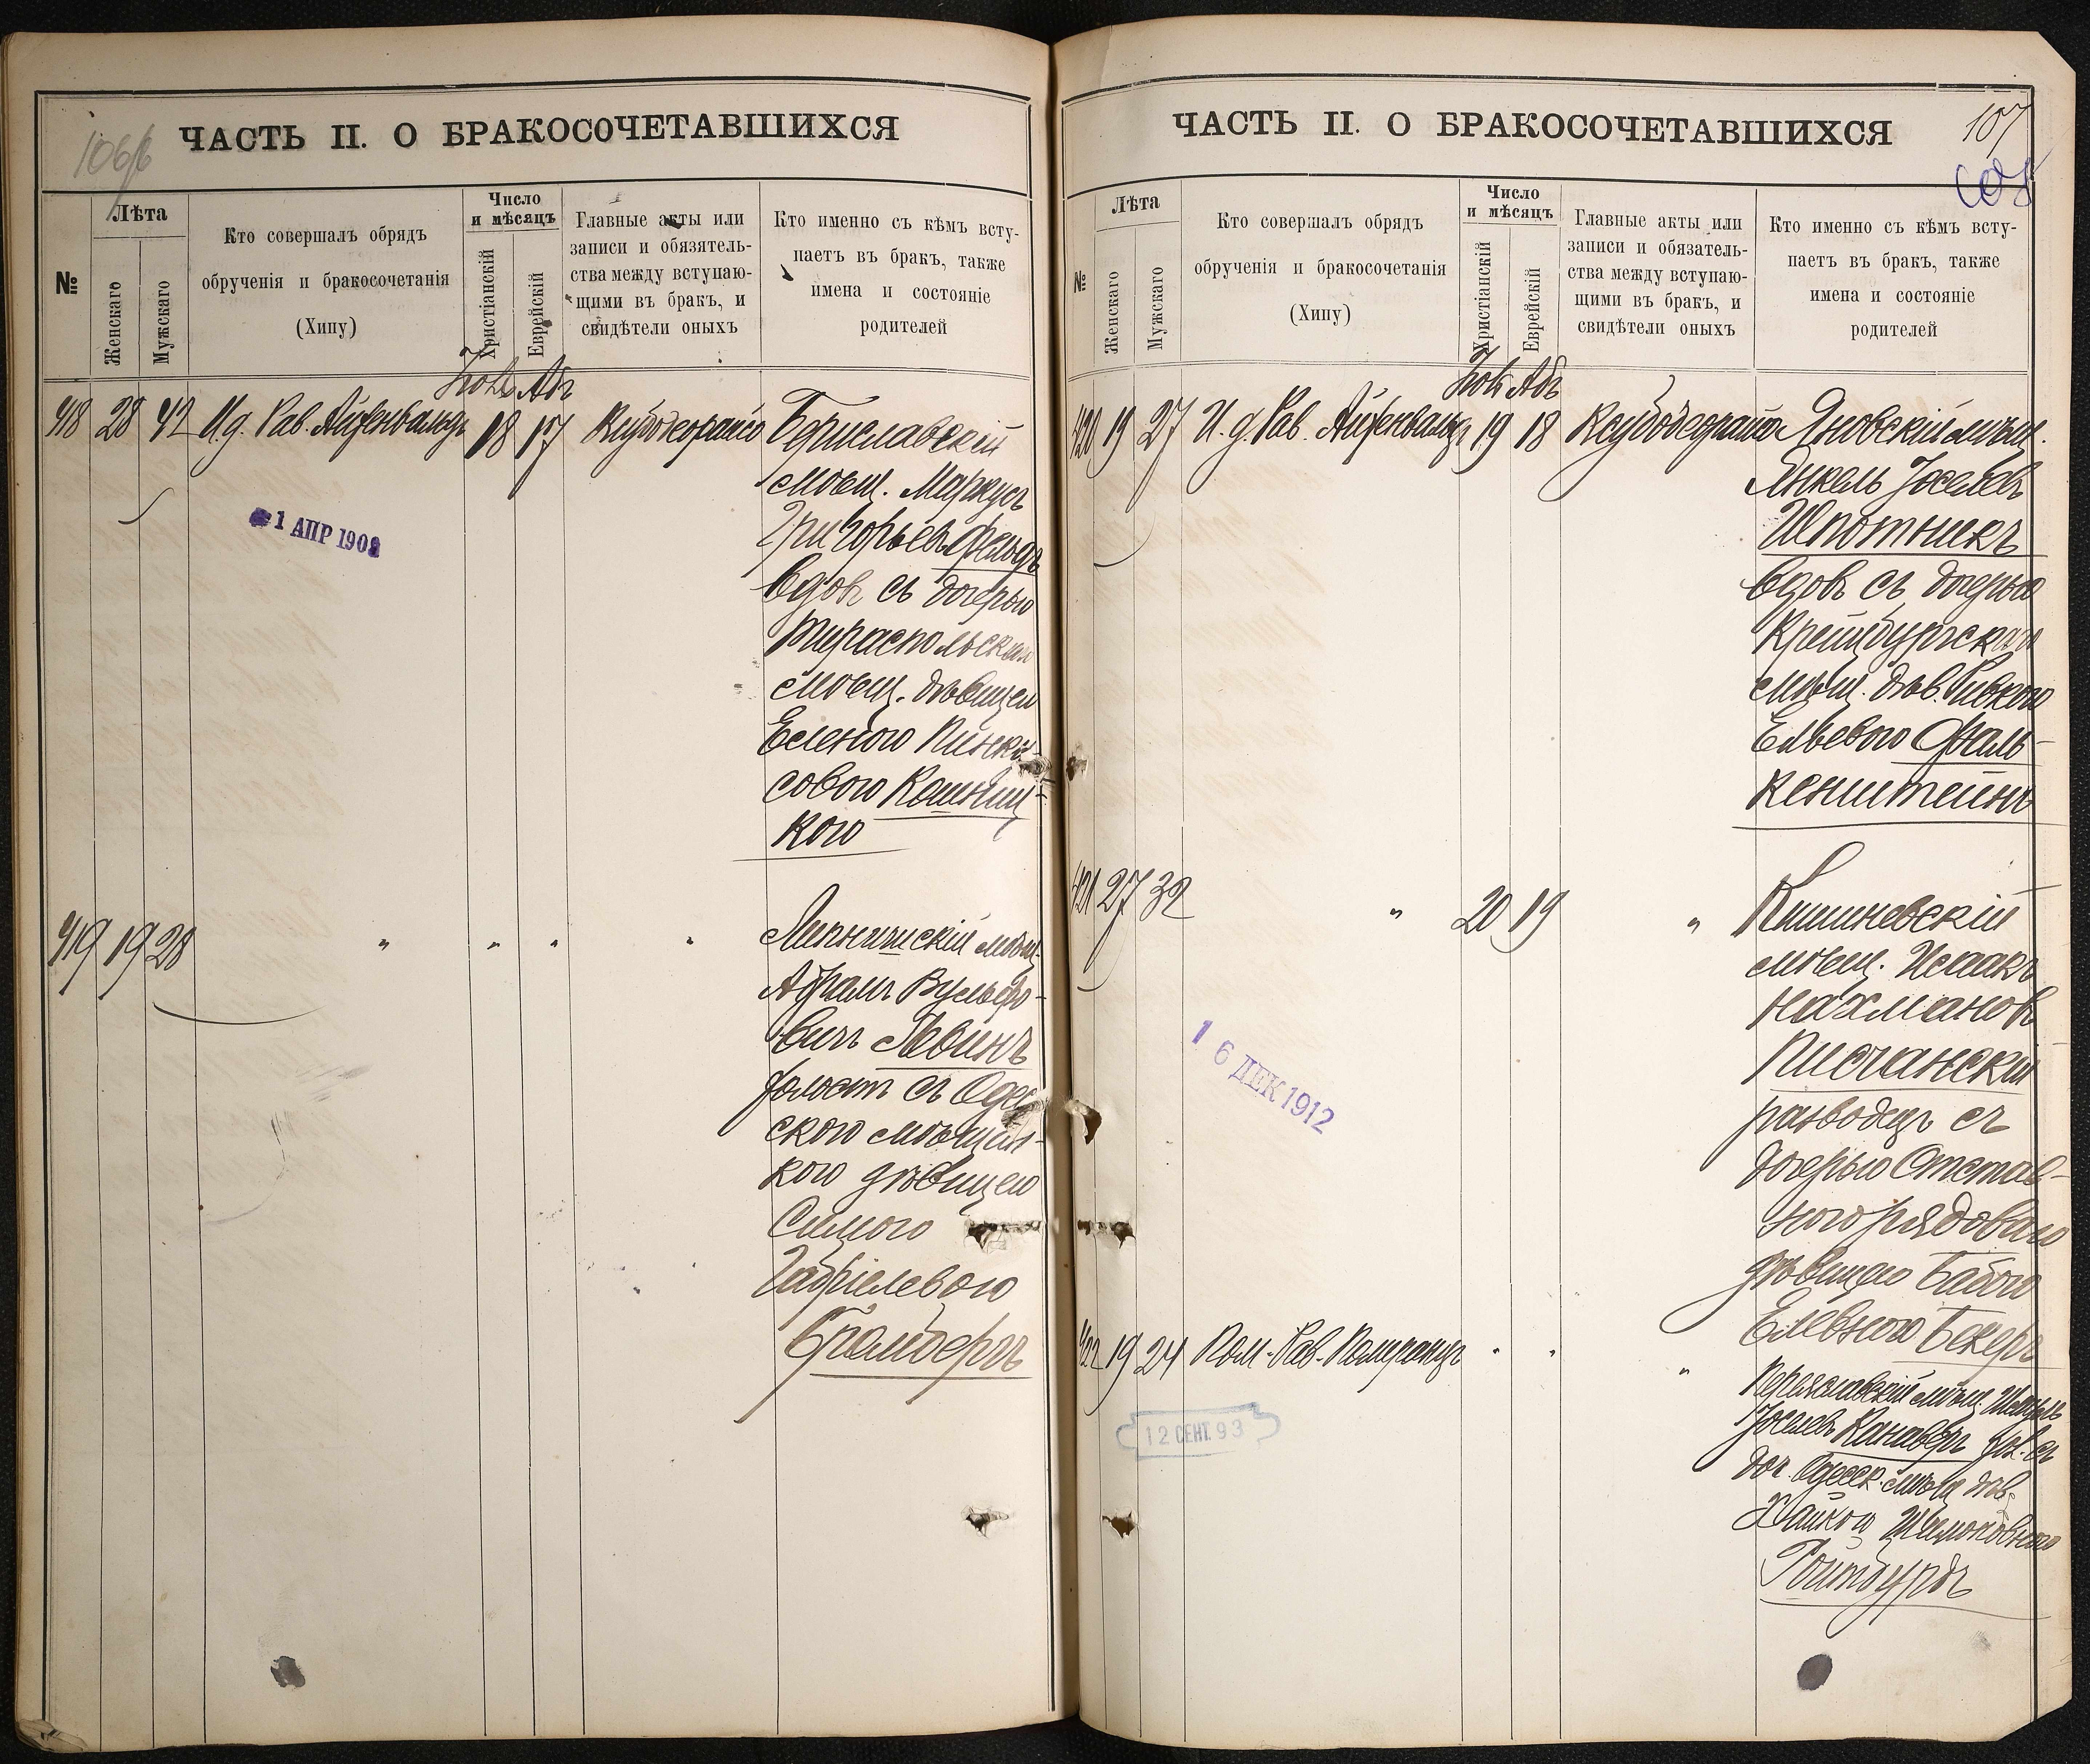 106
ЧАСТЬ II. О БРАКОСОЧЕТАВШИХСЯ
№
Лѣта
Женскаго
Мужскаго
Кто совершалъ обрядъ
обрученія и бракосочетанія
(Хипу)
Число
и мѣсяцъ
Христіанскій
Еврейскій
Главные акты или
записи и обязатель-
ства между вступаю-
щими въ бракъ, и
свидѣтели оныхъ
Кто именно съ кѣмъ всту-
паетъ въ бракъ, также
имена и состояніе
родителей
Абъ
418 28 42 И.д. Рав. Айзенвальдъ 18 17
Бериславскій
мѣщ. Маркусъ
Григорьевъ Фельдъ
вдов съ дочерью
Тираспольскаго
мѣщ. дѣвицею
Еленою Пинка-
совою Кошниц-
кою
1 АПР 1902
419 19 28 " " " "
мѣщ.
Абрамъ Вульфо-
вичъ Левинъ
холост съ Одес-
скою мѣщан-
кою дѣвицею
Симою
Габріелевою
Бромбергъ
107
ЧАСТЬ II. О БРАКОСОЧЕТАВШИХСЯ
№
Лѣта
Женскаго
Мужскаго
Кто совершалъ обрядъ
обрученія и бракосочетанія
(Хипу)
Число
и мѣсяцъ
Христіанскій
Еврейскій
Главные акты или
записи и обязатель-
ства между вступаю-
щими въ бракъ, и
свидѣтели оныхъ
Кто именно съ кѣмъ всту-
паетъ въ бракъ, также
имена и состояніе
родителей
Абъ
420 19 27 И.д. Рав. Айзенвальдъ 19 18 Яновскій мѣщ.
Янкель Іоселевъ
Шпотникъ
вдовъ съ дочерью
Крейцбургскаго
мѣщ. дѣв. Ривкою
Ельевою Фаль-
кенштейнъ
421 27 32 " 20 19 " Кишиневскій
мѣщ. Исаакъ
Нахмановъ
Писчанскій
разводецъ съ
дочерью Отстав-
ного рядоваго
дѣвицею Бабою
Елевною Бекеръ
1 6 ДЕК 1912
422 19 24 Пом. Рав. Помранцъ " " "
Переяславскій мѣщ.
Іоселевъ хол. съ
доч. Одесск. мѣщ. дѣв.
Хайкою
Ройтбурдъ
12 СЕНТ. 93